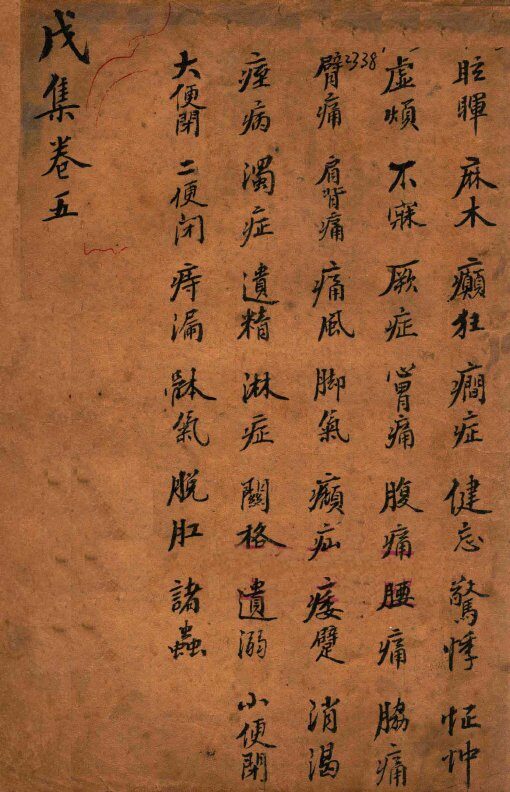 眩暉 麻木 癲狂 癇症 健忘 驚悸 怔忡
虛煩 不寐 厥症 心胃痛 腹痛 腰痛 脇痛
2338
臂痛 肩背痛 痛風 脚氣 㿗疝 痿躄 消渴
痓病 濁症 遺精 淋症 關格 遺溺 小便閉
大便閉 二便闭 痔漏 氣 脫肛 諸蟲
戊集卷五